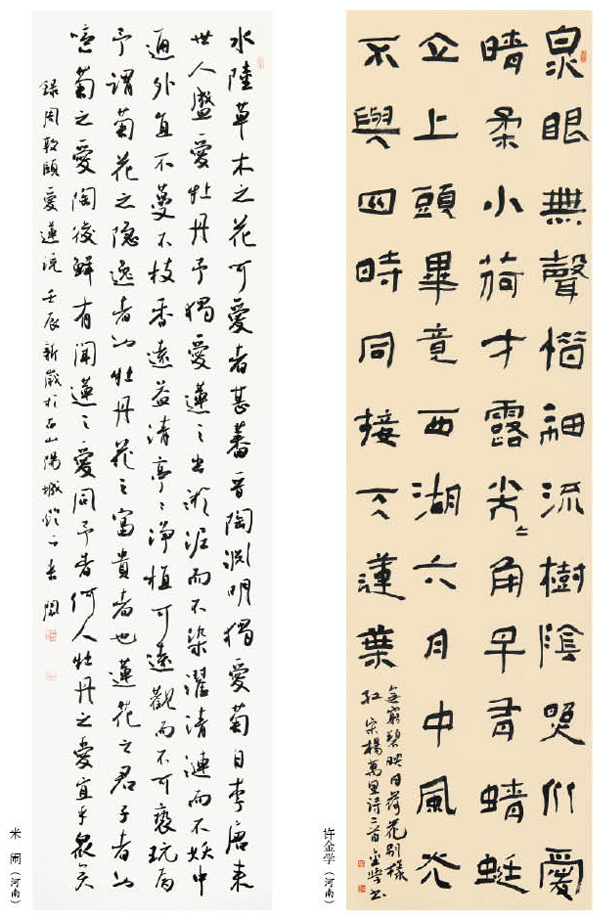 水陸草木之花可愛者甚蕃晉陶淵明獨愛菊自李唐来
世人盛愛牡丹予獨愛蓮之出淤泥而不染濯清漣而不妖中
通外直不蔓不枝香遠益清亭々淨植可遠觀而不可褻玩焉
予謂菊花之隐逸者也牡丹花之富貴者也蓮花之君子者也
噫菊之愛陶後鮮有聞蓮之愛同予者何人牡丹之愛宜乎衆矣
録周敦頤愛蓮説壬辰新歲於石山陽城
米闹（河南）
泉眼無聲惜細流樹陰照水愛
晴柔小荷才露尖々角早有蜻蜓
立上頭畢竟西湖六月中風光
不與四時同接天蓮葉
無窮碧映日荷花别樣
红 宋楊萬里诗二首金學书
许金学（河南）